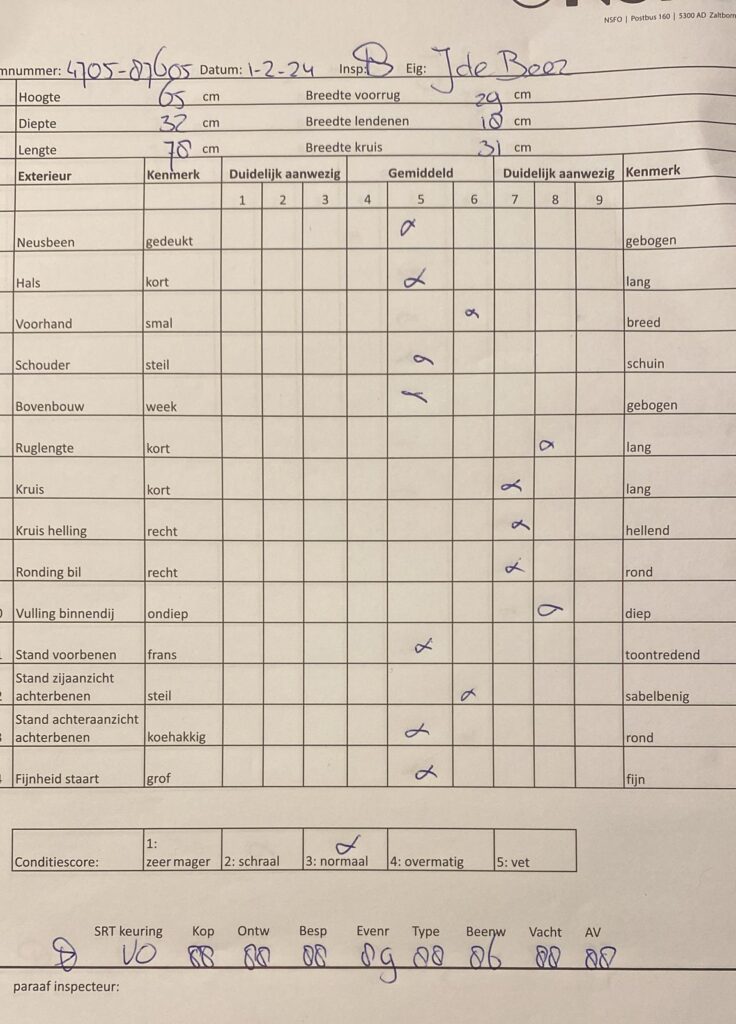 NSFO | Postbus 160 | 5300 AD Zaltbom
mnummer: 4705-87605 Datum: 1-2-24 Insp: B Eig: J de Beer
Hoogte 65 cm Breedte voorrug 29 cm
Diepte 32 cm Breedte lendenen 18 cm
Lengte 78 cm Breedte kruis 31 cm
Exterieur Kenmerk Duidelijk aanwezig Gemiddeld Duidelijk aanwezig Kenmerk
1 2 3 4 5 6 7 8 9
Neusbeen gedeukt gebogen
Hals kort lang
Voorhand smal breed
Schouder steil schuin
Bovenbouw week gebogen
Ruglengte kort lang
Kruis kort lang
Kruis helling recht hellend
Ronding bil recht rond
Vulling binnendij ondiep diep
Stand voorbenen frans toontredend
Stand zijaanzicht
achterbenen steil sabelbenig
Stand achteraanzicht
achterbenen koehakkig rond
Fijnheid staart grof fijn
1:
Conditiescore: zeer mager 2: schraal 3: normaal 4: overmatig 5: vet
SRT keuring Kop Ontw Besp Evenr Type Beenw Vacht AV
VO 88 88 88 89 88 86 88 88
paraaf inspecteur: